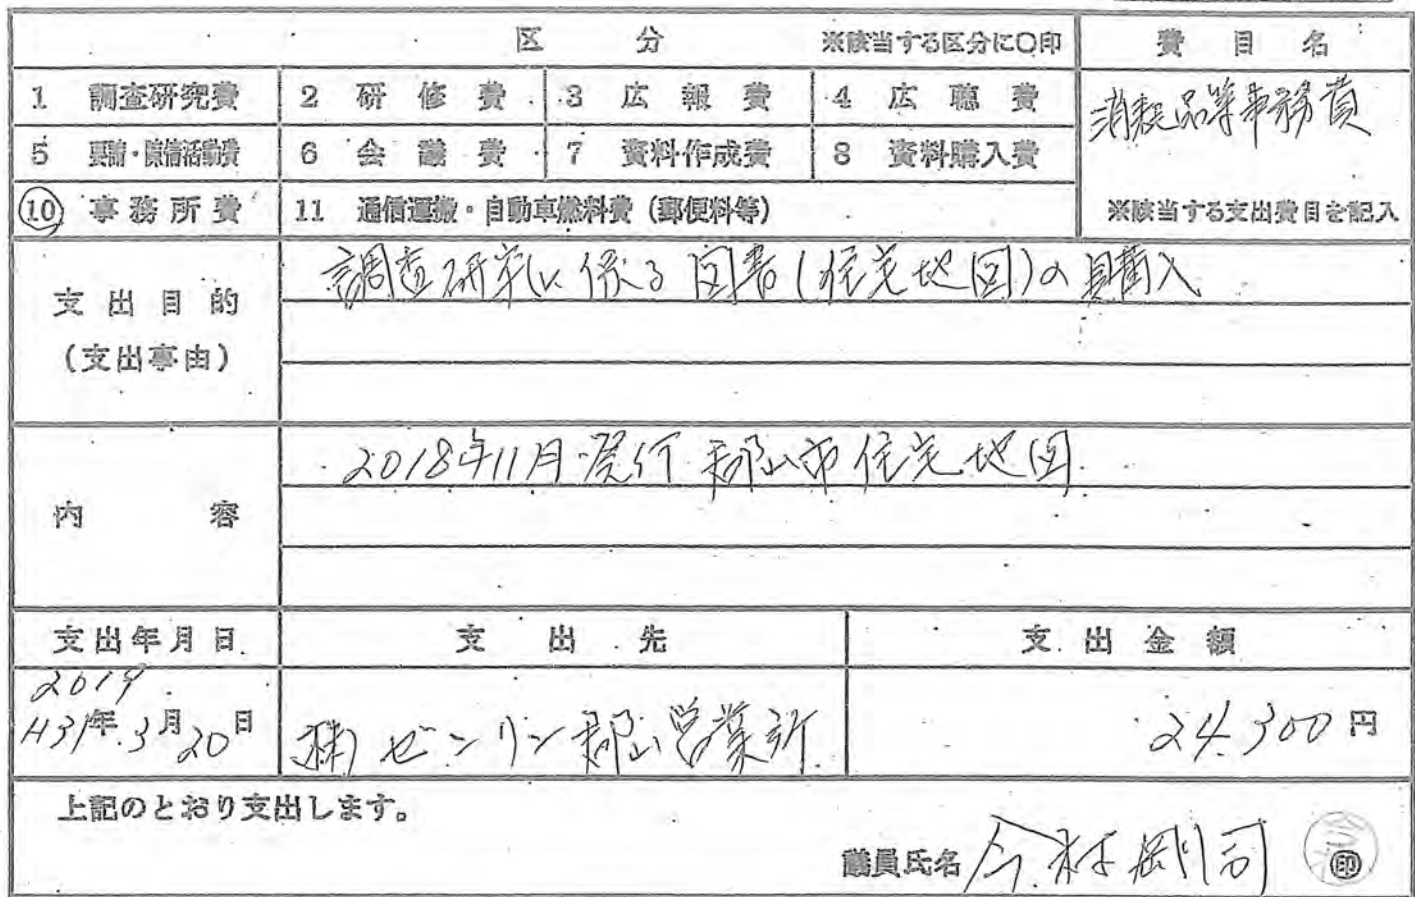 区 分 ※該当する区分に○印 費目名
1 調査研究費 2 研修費 3 広報費 4 広聴費 消耗品等事務費
5 要請・陳情活動費 6 会議費 7 資料作成費 8 資料購入費
⑩ 事務所費 11 通信運搬・自動車燃料費(郵便料等) ※該当する支出費目を記入
支出目的
(支出事由)
調査研究に係る図書(住宅地図)の購入
内容
2018年11月発行 郡山市住宅地図
支出年月日 支出先 支出金額
2019
H31年3月20日 ㈱ゼンリン郡山営業所 24,300円
上記のとおり支出します。
議員氏名 今村剛司 ㊞